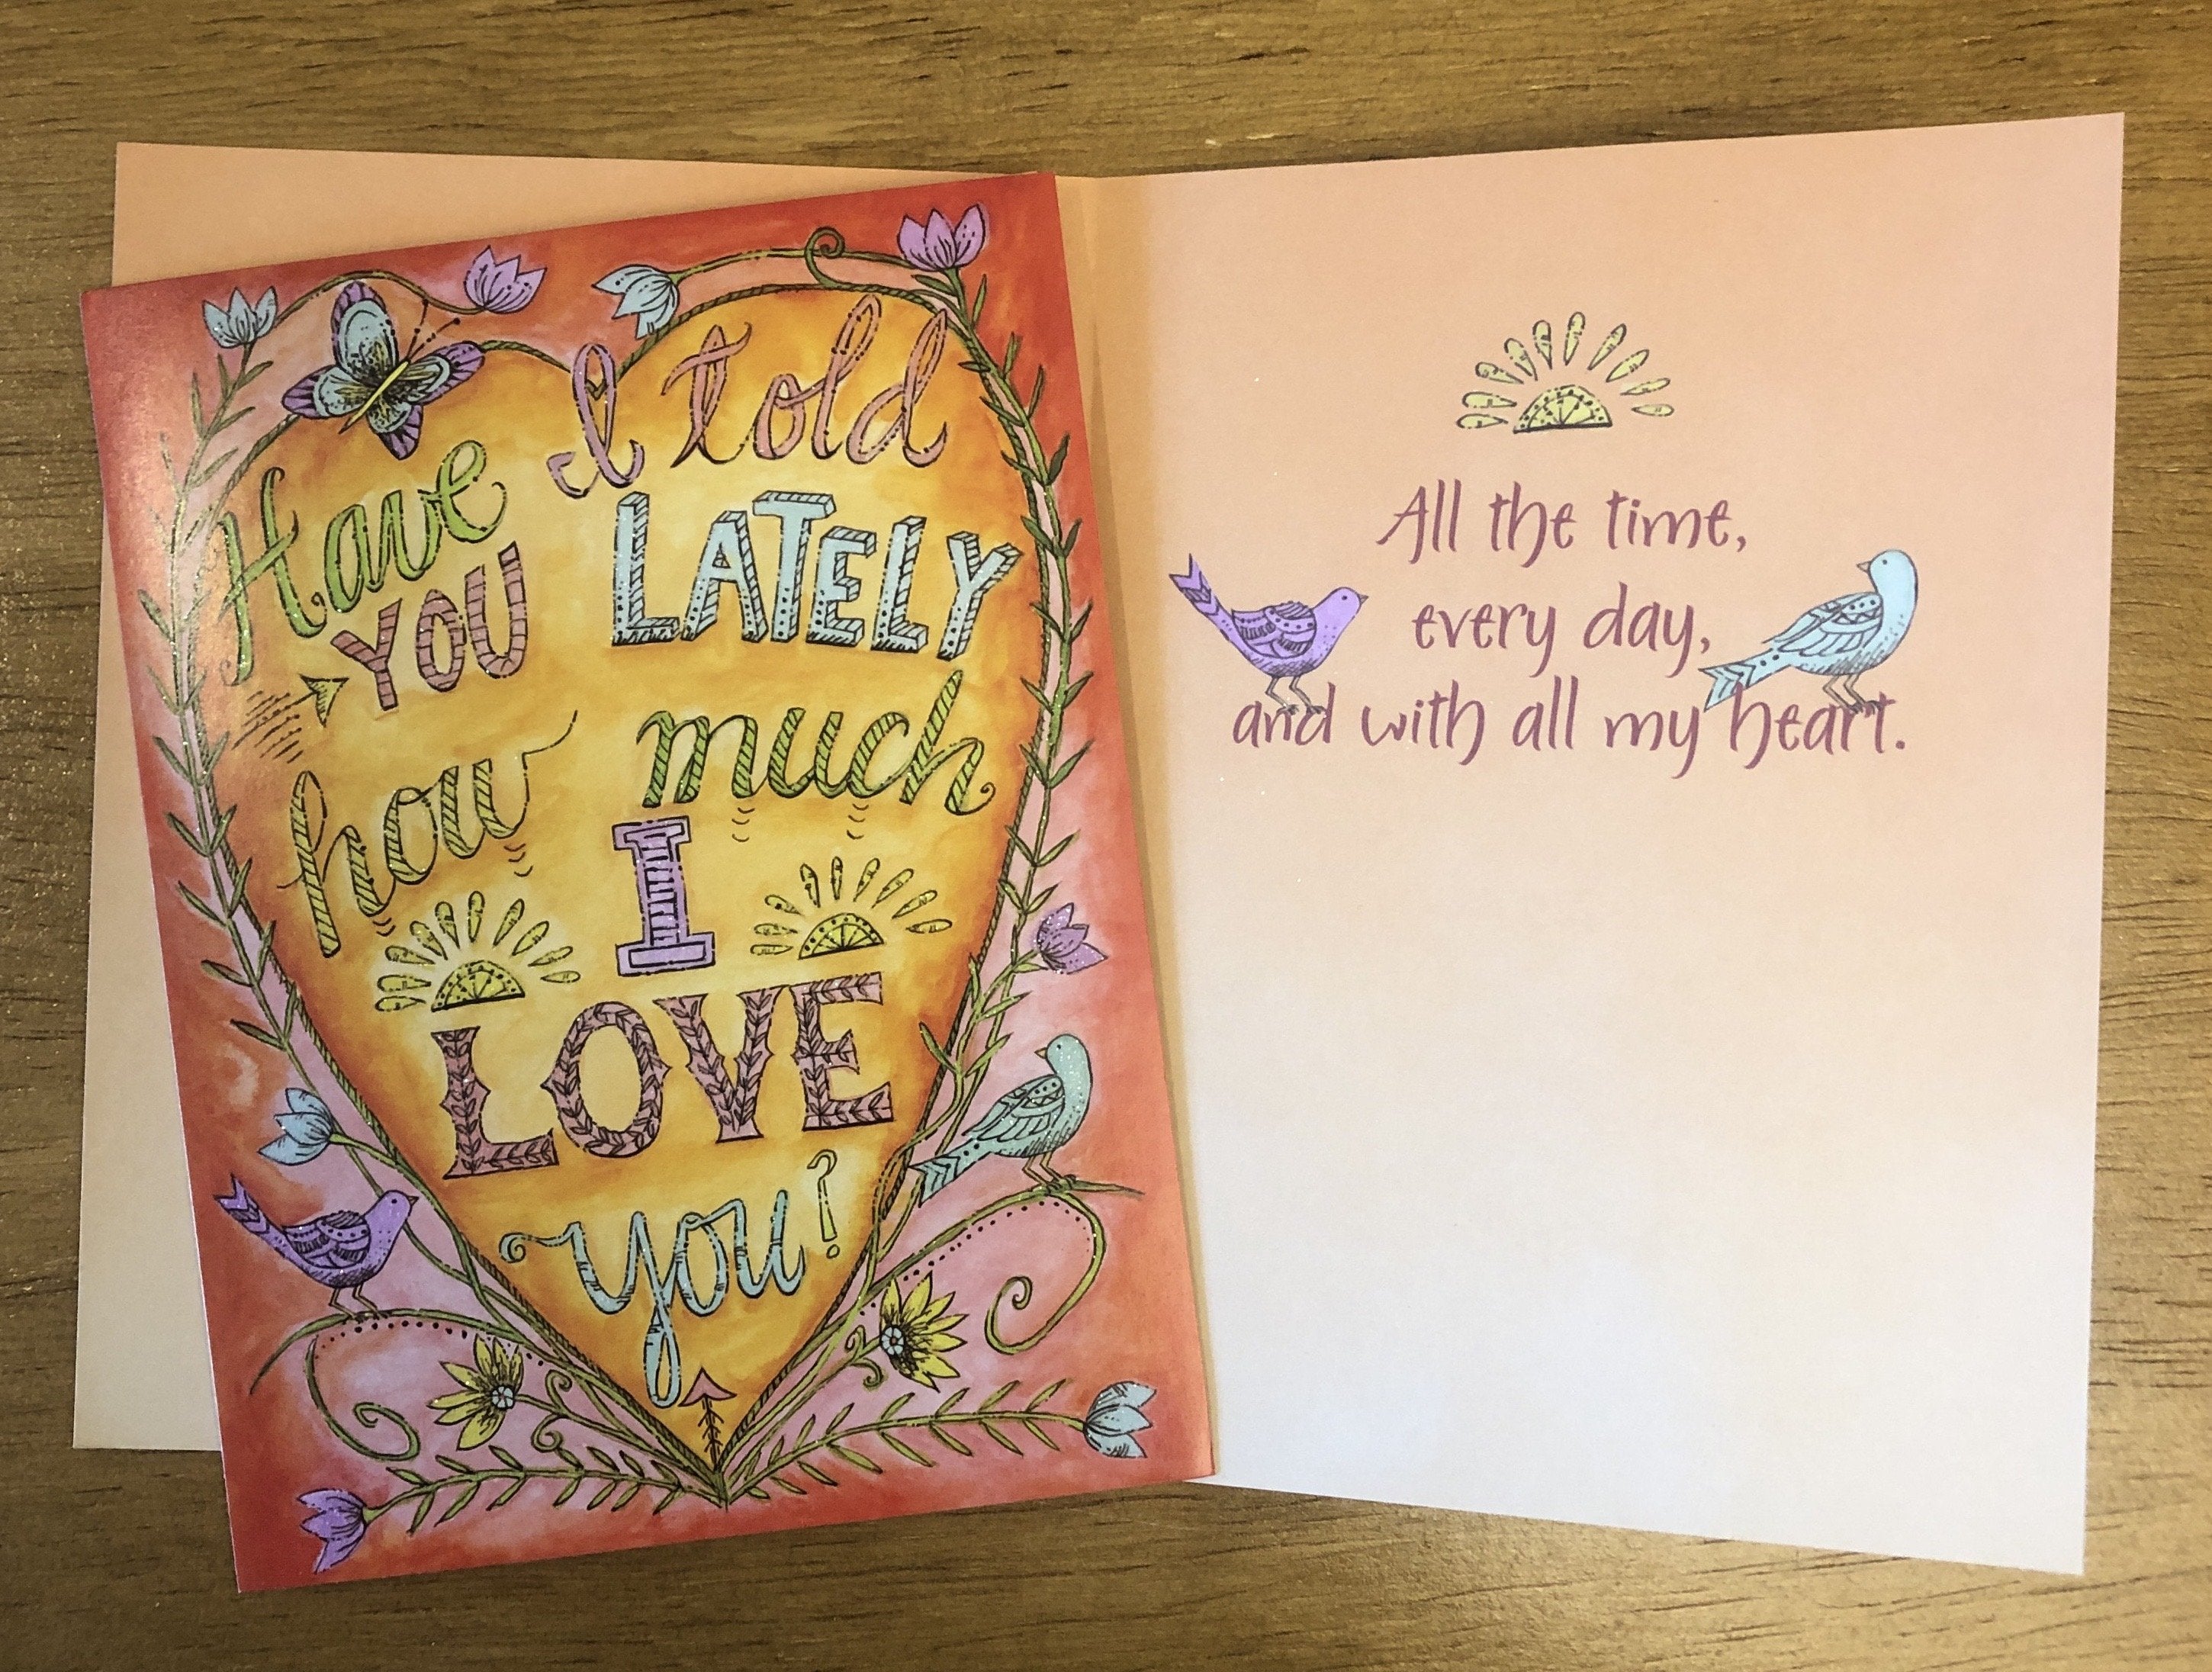 Have I told
YOU LATELY
how much
I
LOVE
you?
All the time,
every day,
and with all my heart.